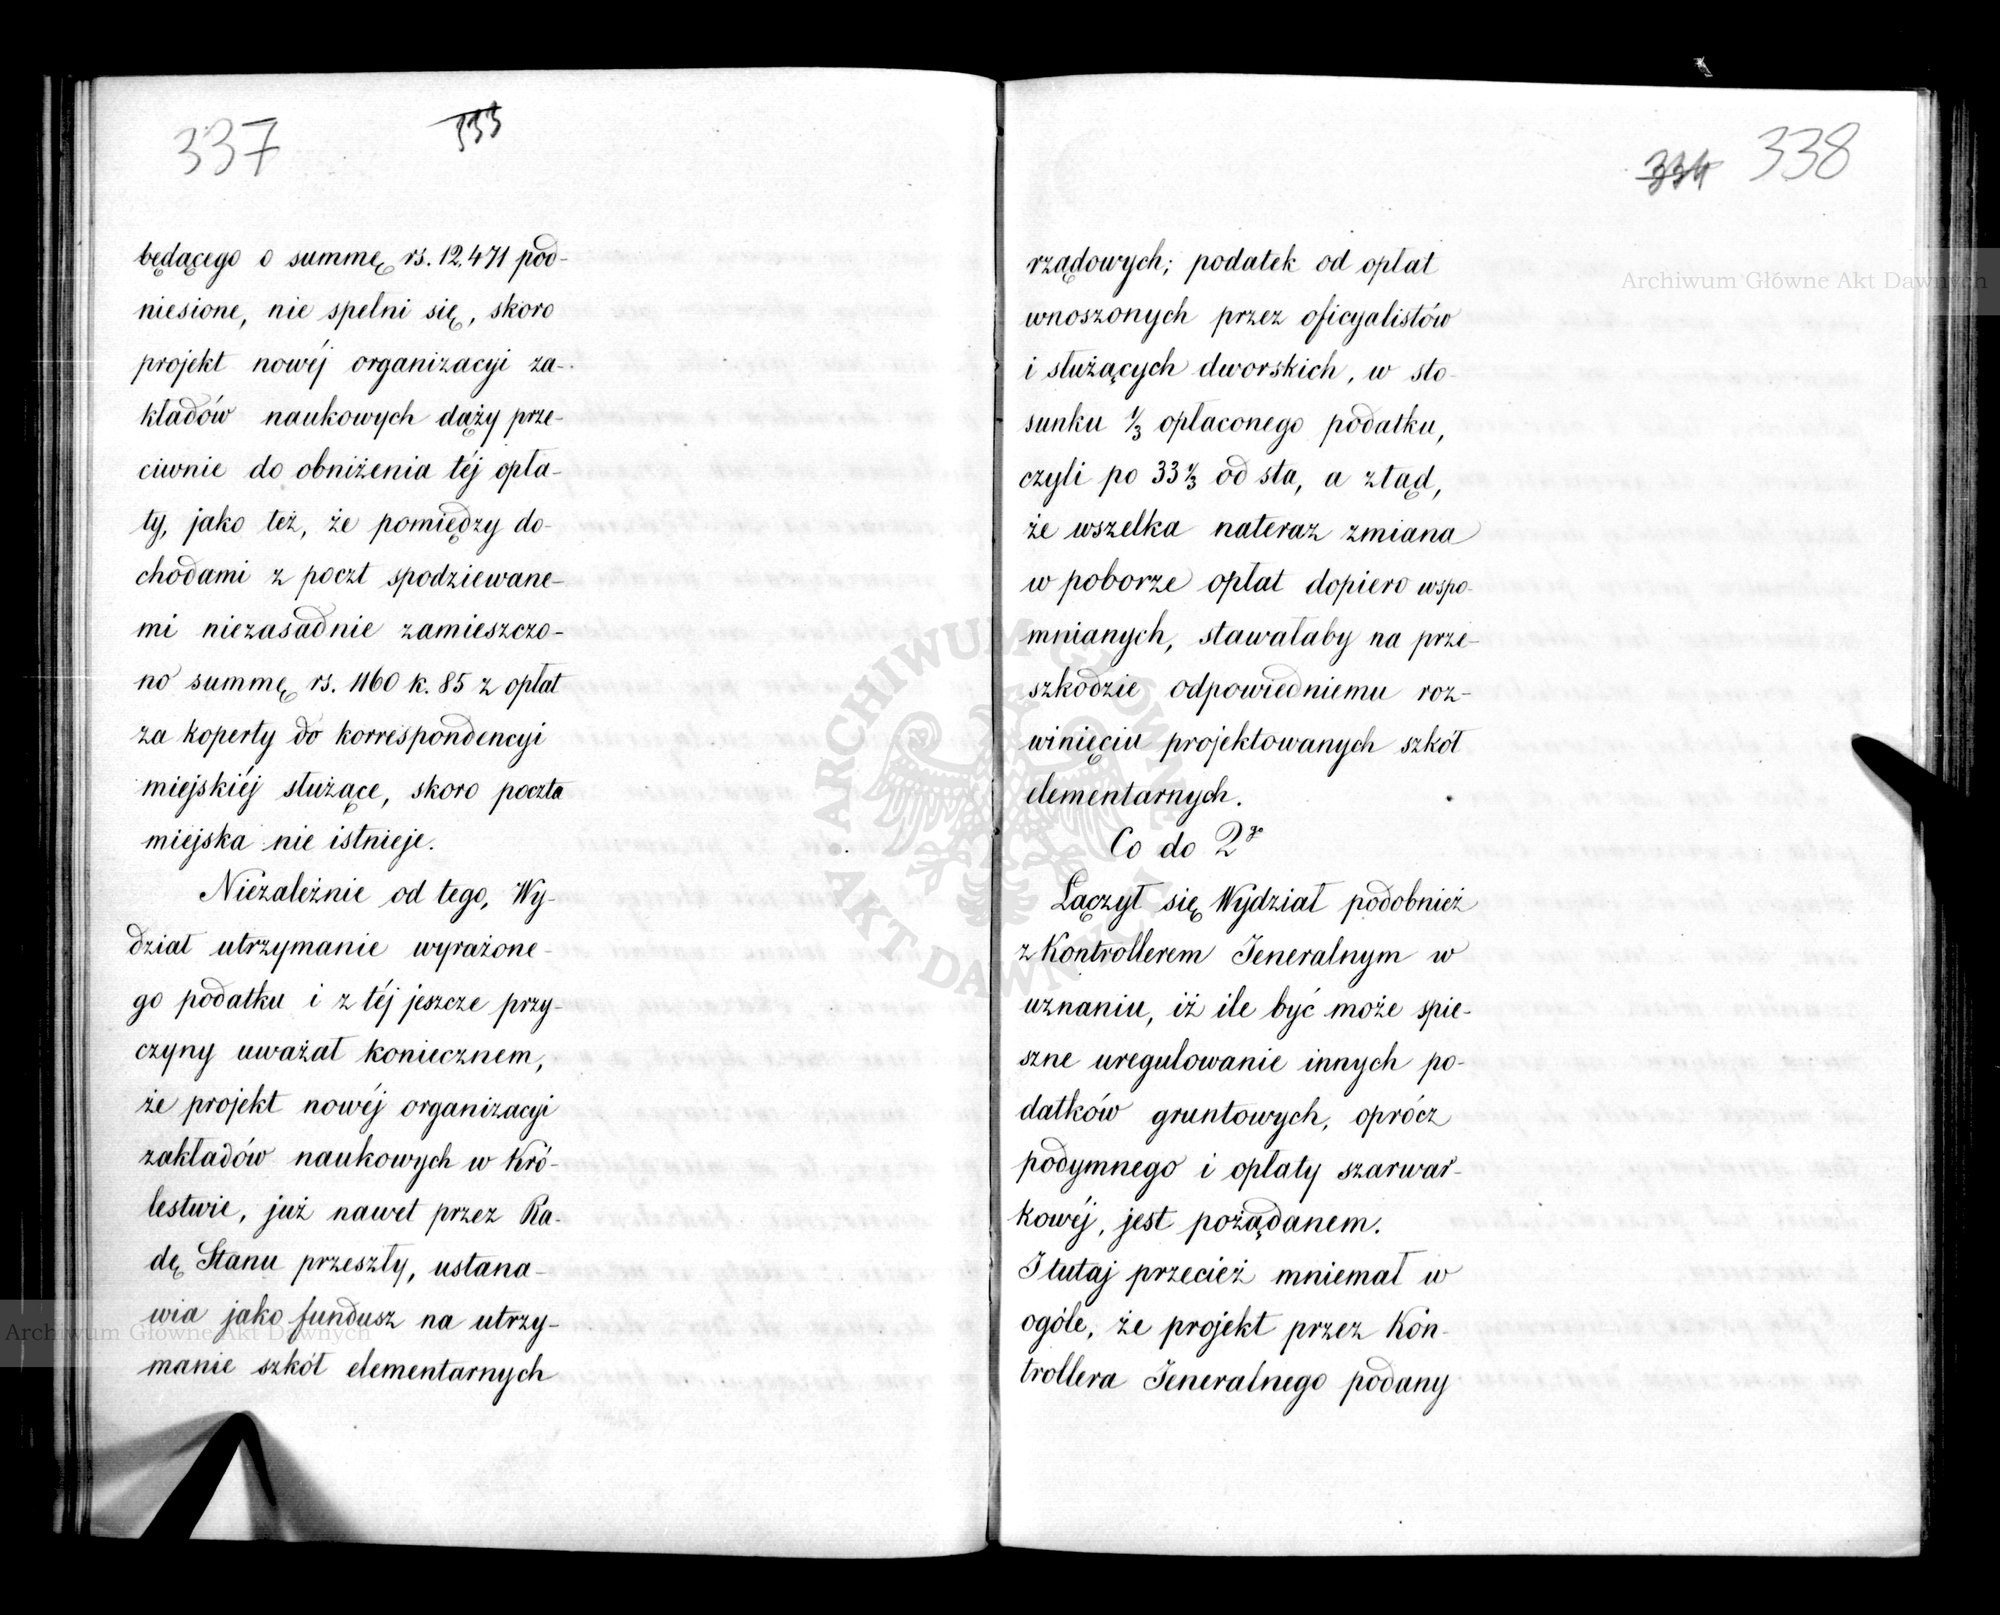 337
333
będącego o summę rs. 12.471 pod-
niesione, nie spełni się, skoro
projekt nowéj organizacyi za-
kładów naukowych dąży prze-
ciwnie do obniżenia téj opła-
ty, jako też, że pomiędzy do-
chodami z poczt spodziewane-
mi niezasadnie zamieszczo-
no summę rs. 1160 k. 85 z opłat
za koperty do korrespondencyi
miejskiéj służące, skoro poczta
miejska nie istnieje.
Niezależnie od tego, Wy-
dział utrzymanie wyrażone-
go podatku i z téj jeszcze przy-
czyny uważał koniecznem,
że projekt nowéj organizacyi
zakładów naukowych w Kró-
lestwie, już nawet przez Ra-
dę Stanu przeszły, ustana-
wia jako fundusz na utrzy-
manie szkół elementarnych
334 338
rządowych; podatek od opłat
wnoszonych przez oficyalistów
i służących dworskich, w sto-
sunku 1/3 opłaconego podatku,
czyli po 33 1/3 od sta, a ztąd,
że wszelka nateraz zmiana
w poborze opłat dopiero wspo-
mnianych, stawałaby na prze-
szkodzie odpowiedniemu roz-
winięciu projektowanych szkół
elementarnych.
Co do 2go
Łączył się Wydział podobnież
z Kontrollerem Jeneralnym w
uznaniu, iż ile być może spie-
szne uregulowanie innych po-
datków gruntowych, oprócz
podymnego i opłaty szarwar-
kowéj, jest pożądanem.
I tutaj przecież mniemał w
ogóle, że projekt przez Kon-
trollera Jeneralnego podany
Archiwum Główne Akt Dawnych
Archiwum Główne Akt Dawnych
ARCHIWUM GŁÓWNE AKT DAWNYCH